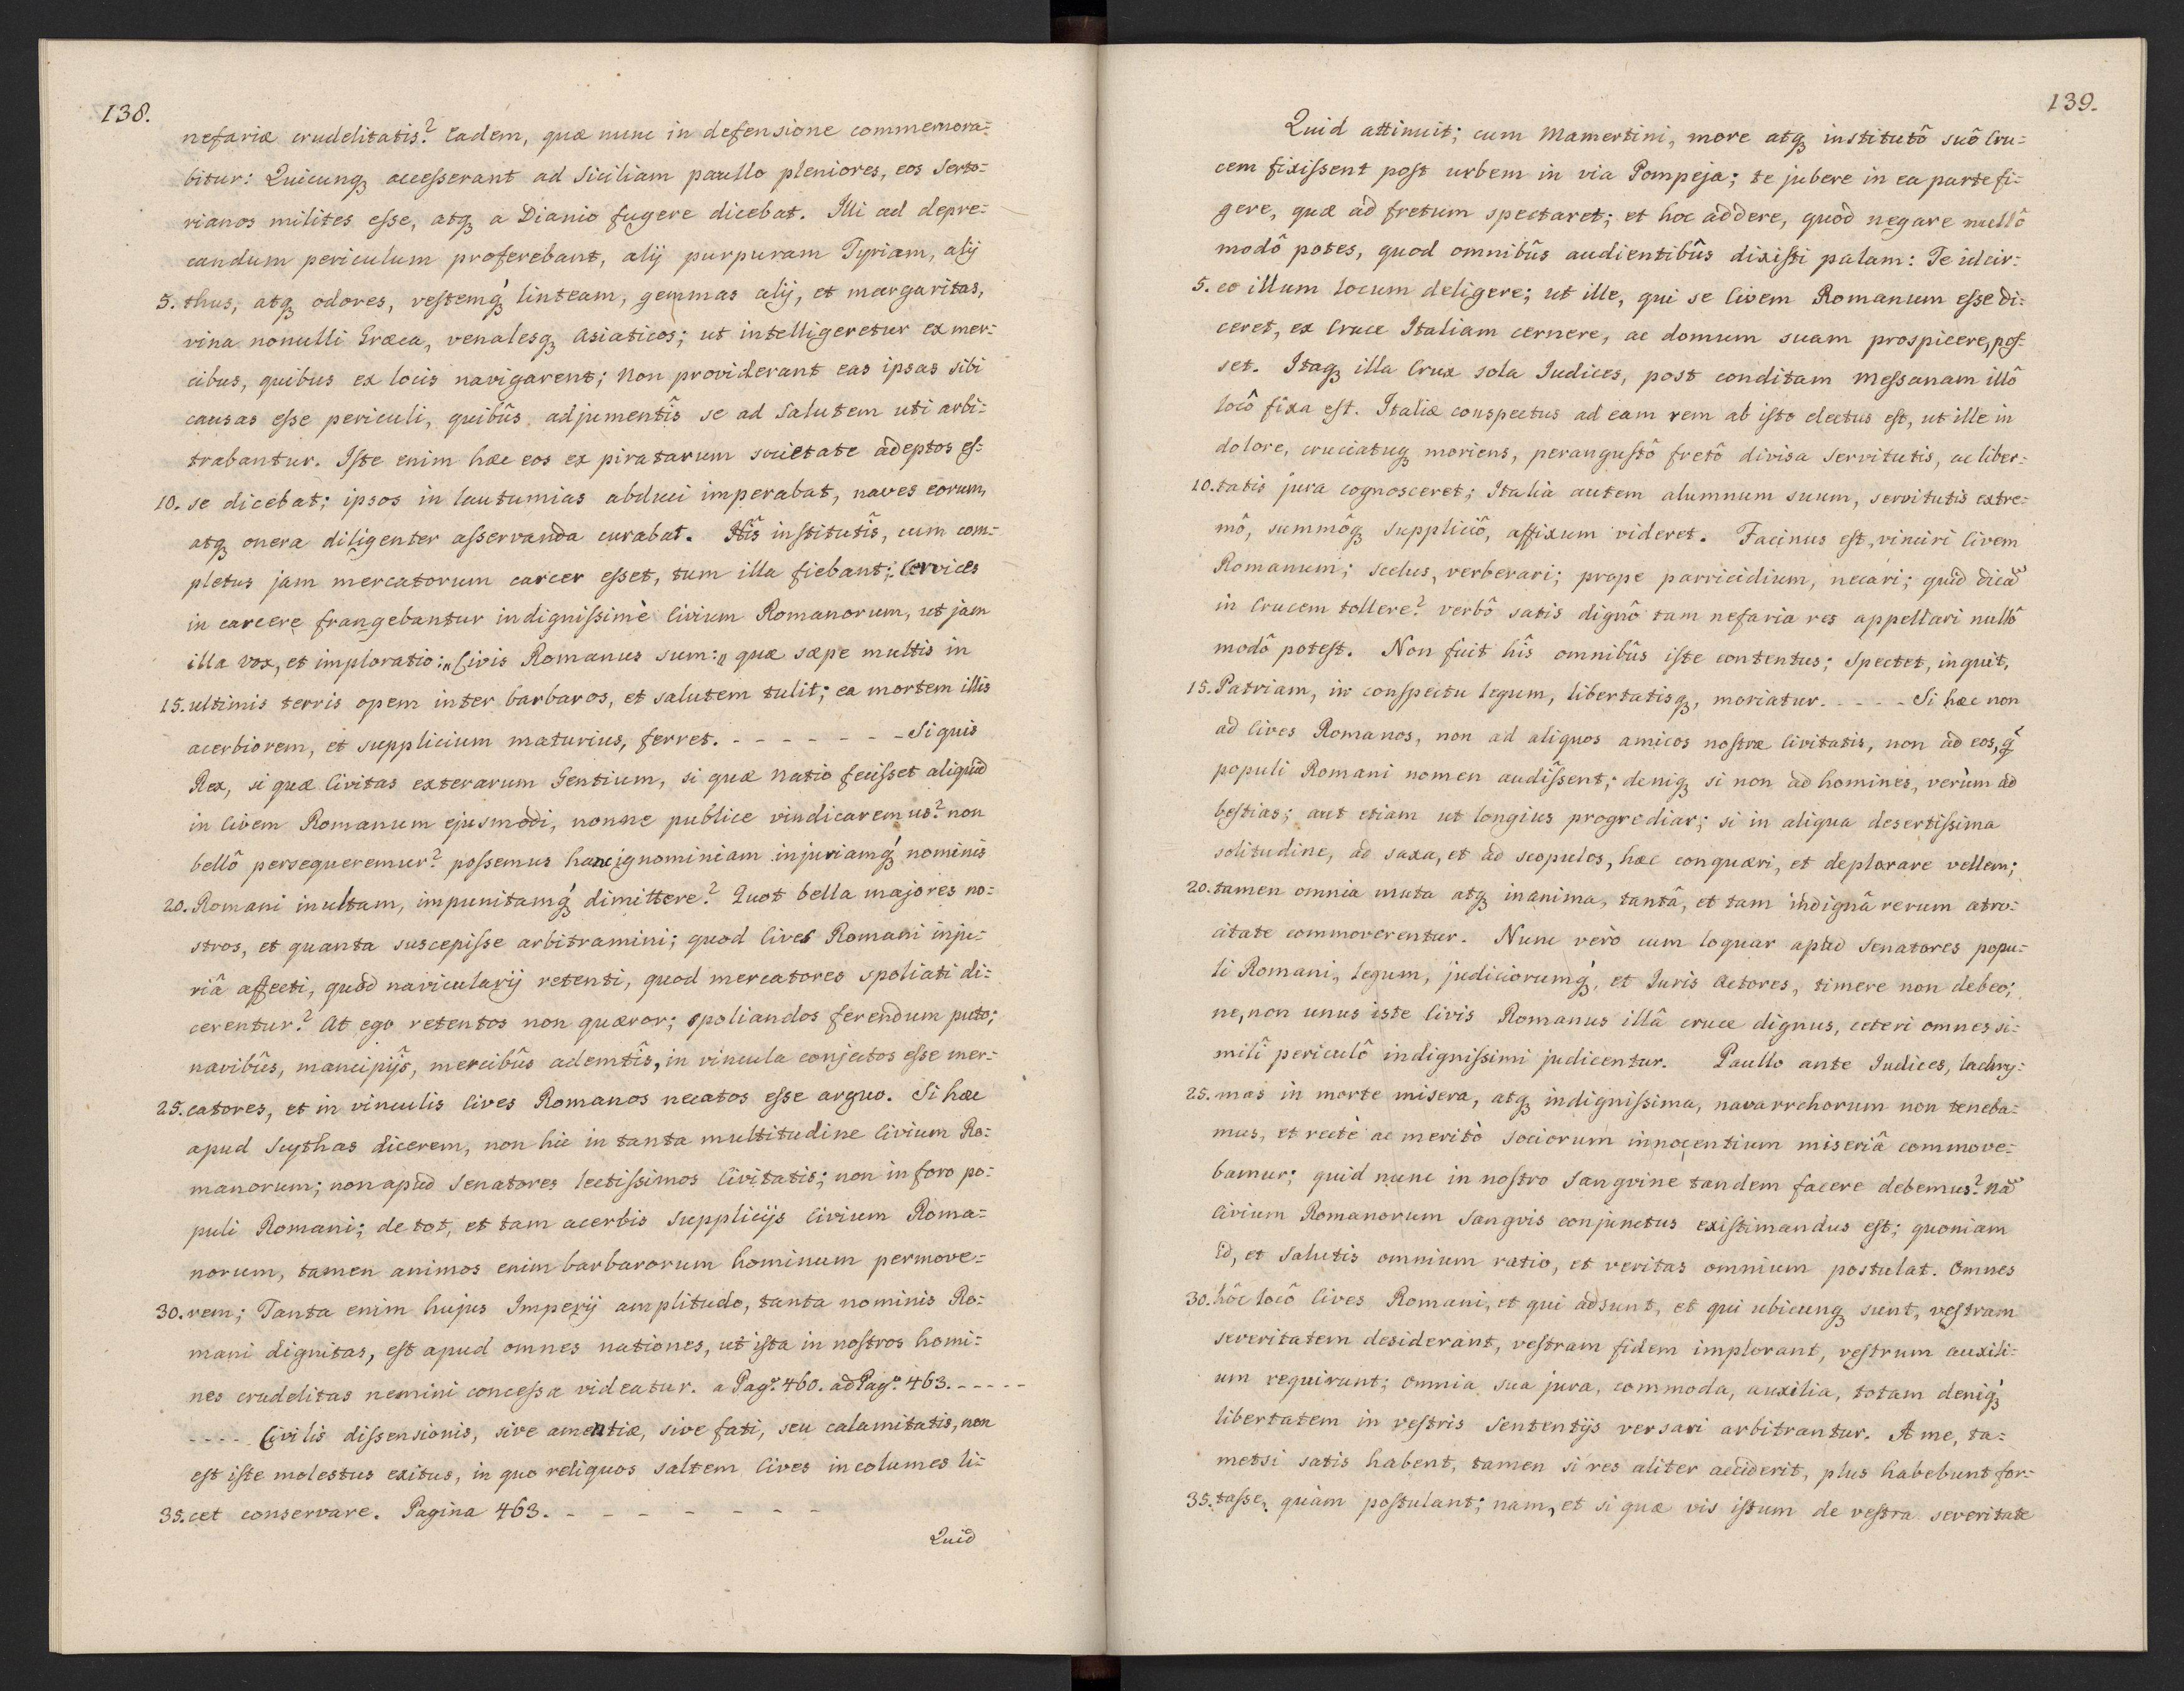 138.
nefariæ crudelitatis? Eadem, quæ nunc in defensione commemora:
bitur: Quicunq; accesserant ad Siciliam paullo pleniores, eos Serto:
rianos milites esse, atq; a Dianio fugere dicebat. Illi ad depre:
candum periculum proferebant, alij purpuram Tyriam, alij
5. thus, atq; odores, vestemq́; linteam, gemmas alij, et margaritas,
vina nonulli Græca, venalesq; Asiaticos; ut intelligeretur ex mer:
cibus, quibus ex locis navigarent; Non providerant eas ipsas sibi
causas esse periculi, quibûs adjumentîs se ad Salutem uti arbi:
trabantur. Iste enim hæc eos ex piratarum societate adeptos es:
10. se dicebat; ipsos in lautumias abduci imperabat, naves eorum,
atq; onera diligenter asservanda curabat. Hîs institutîs, cum com:
pletus jam mercatorum carcer esset, tum illa fiebant; Cervices
in carcere frangebantur indignissimè Civium Romanorum, ut jam
illa vox, et imploratio: „Civis Romanus sum:„ quæ sæpe multis in
15. ultimis terris opem inter barbaros, et salutem tulit; ea mortem illis
acerbiorem, et supplicium maturius, ferret. - - - - - - - Si quis
Rex, si quæ Civitas exterarum Gentium, si quæ Natio fecisset aliquid
in Civem Romanum ejusmodi, nonne publice vindicaremus? non
bellô persequeremur? possemus hanc ignominiam injuriamq́; nominis
20. Romani inultam, impunitamq́; dimittere? Quot bella majores no:
stros, et quanta suscepisse arbitramini; quod Cives Romani inju:
riâ affecti, quòd navicularij retenti, quod mercatores spoliati di:
cerentur? At ego retentos non quæror; spoliandos ferendum puto;
navibûs, mancipijs, mercibûs ademtîs, in vincula conjectos esse mer:
25. catores, et in vinculis Cives Romanos necatos esse arguo. Si hæc
apud Scythas dicerem, non hic in tanta multitudine Civium Ro:
manorum; non apud Senatores lectissimos Civitatis; non in foro po:
puli Romani; de tot, et tam acerbis supplicijs Civium Roma:
norum, tamen animos enim barbarorum hominum permove:
30. rem; Tanta enim hujus Imperij amplitudo, tanta nominis Ro:
mani dignitas, est apud omnes nationes, ut ista in nostros homi:
nes crudelitas nemini concessa videatur. a Pag. 460. ad Pag. 463. - - - - -
- - - - Civilis dissensionis, sive amentiæ, sive fati, seu calamitatis, non
est iste molestus exitus, in quo reliquos saltem Cives incolumes li:
35. cet conservare. Pagina 463. - - - - - - -
Quid
139.
Quid attinuit; cum Mamertini, more atq; institutô suô Cru:
cem fixissent post urbem in via Pompeja; te jubere in ea parte fi:
gere, quæ ad fretum spectaret; et hoc addere, quòd negare nullô
modô potes, quod omnibûs audientibûs dixisti palam: Te idcir:
5. co illum locum deligere; ut ille, qui se Civem Romanum esse di:
ceret, ex Cruce Italiam cernere, ac domum suam prospicere, pos:
set. Itaq; illa Crux sola Iudices, post conditam Messanam illô
locô fixa est. Italiæ conspectus ad eam rem ab isto electus est, ut ille in
dolore, cruciatuq; moriens, perangustô fretô divisa Servitutis, ac liber:
10. tatis jura cognosceret; Italia autem alumnum suum, servitutis extre:
mô, summôq; Suppliciô, affixum videret. Facinus est, vinciri Civem
Romanum; Scelus, verberari; prope parricidium, necari; quid dicam̃
in Crucem tollere? verbô satis dignô tam nefaria res appellari nullô
modô potest. Non fuit hîs omnibûs iste contentus; Spectet, inquit,
15. Patriam, in conspectu legum, libertatisq;, moriatur. - - - - - Si hæc non
ad Cives Romanos, non ad aliquos amicos nostræ Civitatis, non ad eos, q̃
populi Romani nomen audîssent; deniq; si non ad homines, verùm ad
bestias; aut etiam ut longius progrediar; si in aliqua desertissima
solitudine, ad saxa, et ad scopulos, hæc conquæri, et deplorare vellem;
20. tamen omnia muta atq; inanima, tantâ, et tam indignâ rerum atro:
citate commoverentur. Nunc verò cum loquar apud Senatores popu:
li Romani, legum, judiciorumq́;, et Juris Actores, timere non debeo;
ne, non unus iste Civis Romanus illâ cruce dignus, ceteri omnes si:
milî periculô indignissimi judicentur. Paullo ante Iudices, lachry:
25. mas in morte misera, atq; indignissima, navarrchorum non teneba:
mus, et rectè ac meritò Sociorum innocentium miseriâ commove:
bamur; quid nunc in nostro Sangvine tandem facere debemus? Nã
Civium Romanorum Sangvis conjunctus existimandus est; quoniam
id, et Salutis omnium ratio, et veritas omnium postulat. Omnes
30. hôc locô Cives Romani, et qui adsunt, et qui ubicunq; sunt, vestram
severitatem desiderant, vestram fidem implorant, vestrum auxili:
um requirunt; Omnia sua jura, commoda, auxilia, totam deniq́;
libertatem in vestris Sententijs versari arbitrantur. A me, ta:
metsi satis habent, tamen si res aliter acciderit, plus habebunt for:
35. tasse, quàm postulant; nam, et si quæ vis istum de vestra severitate